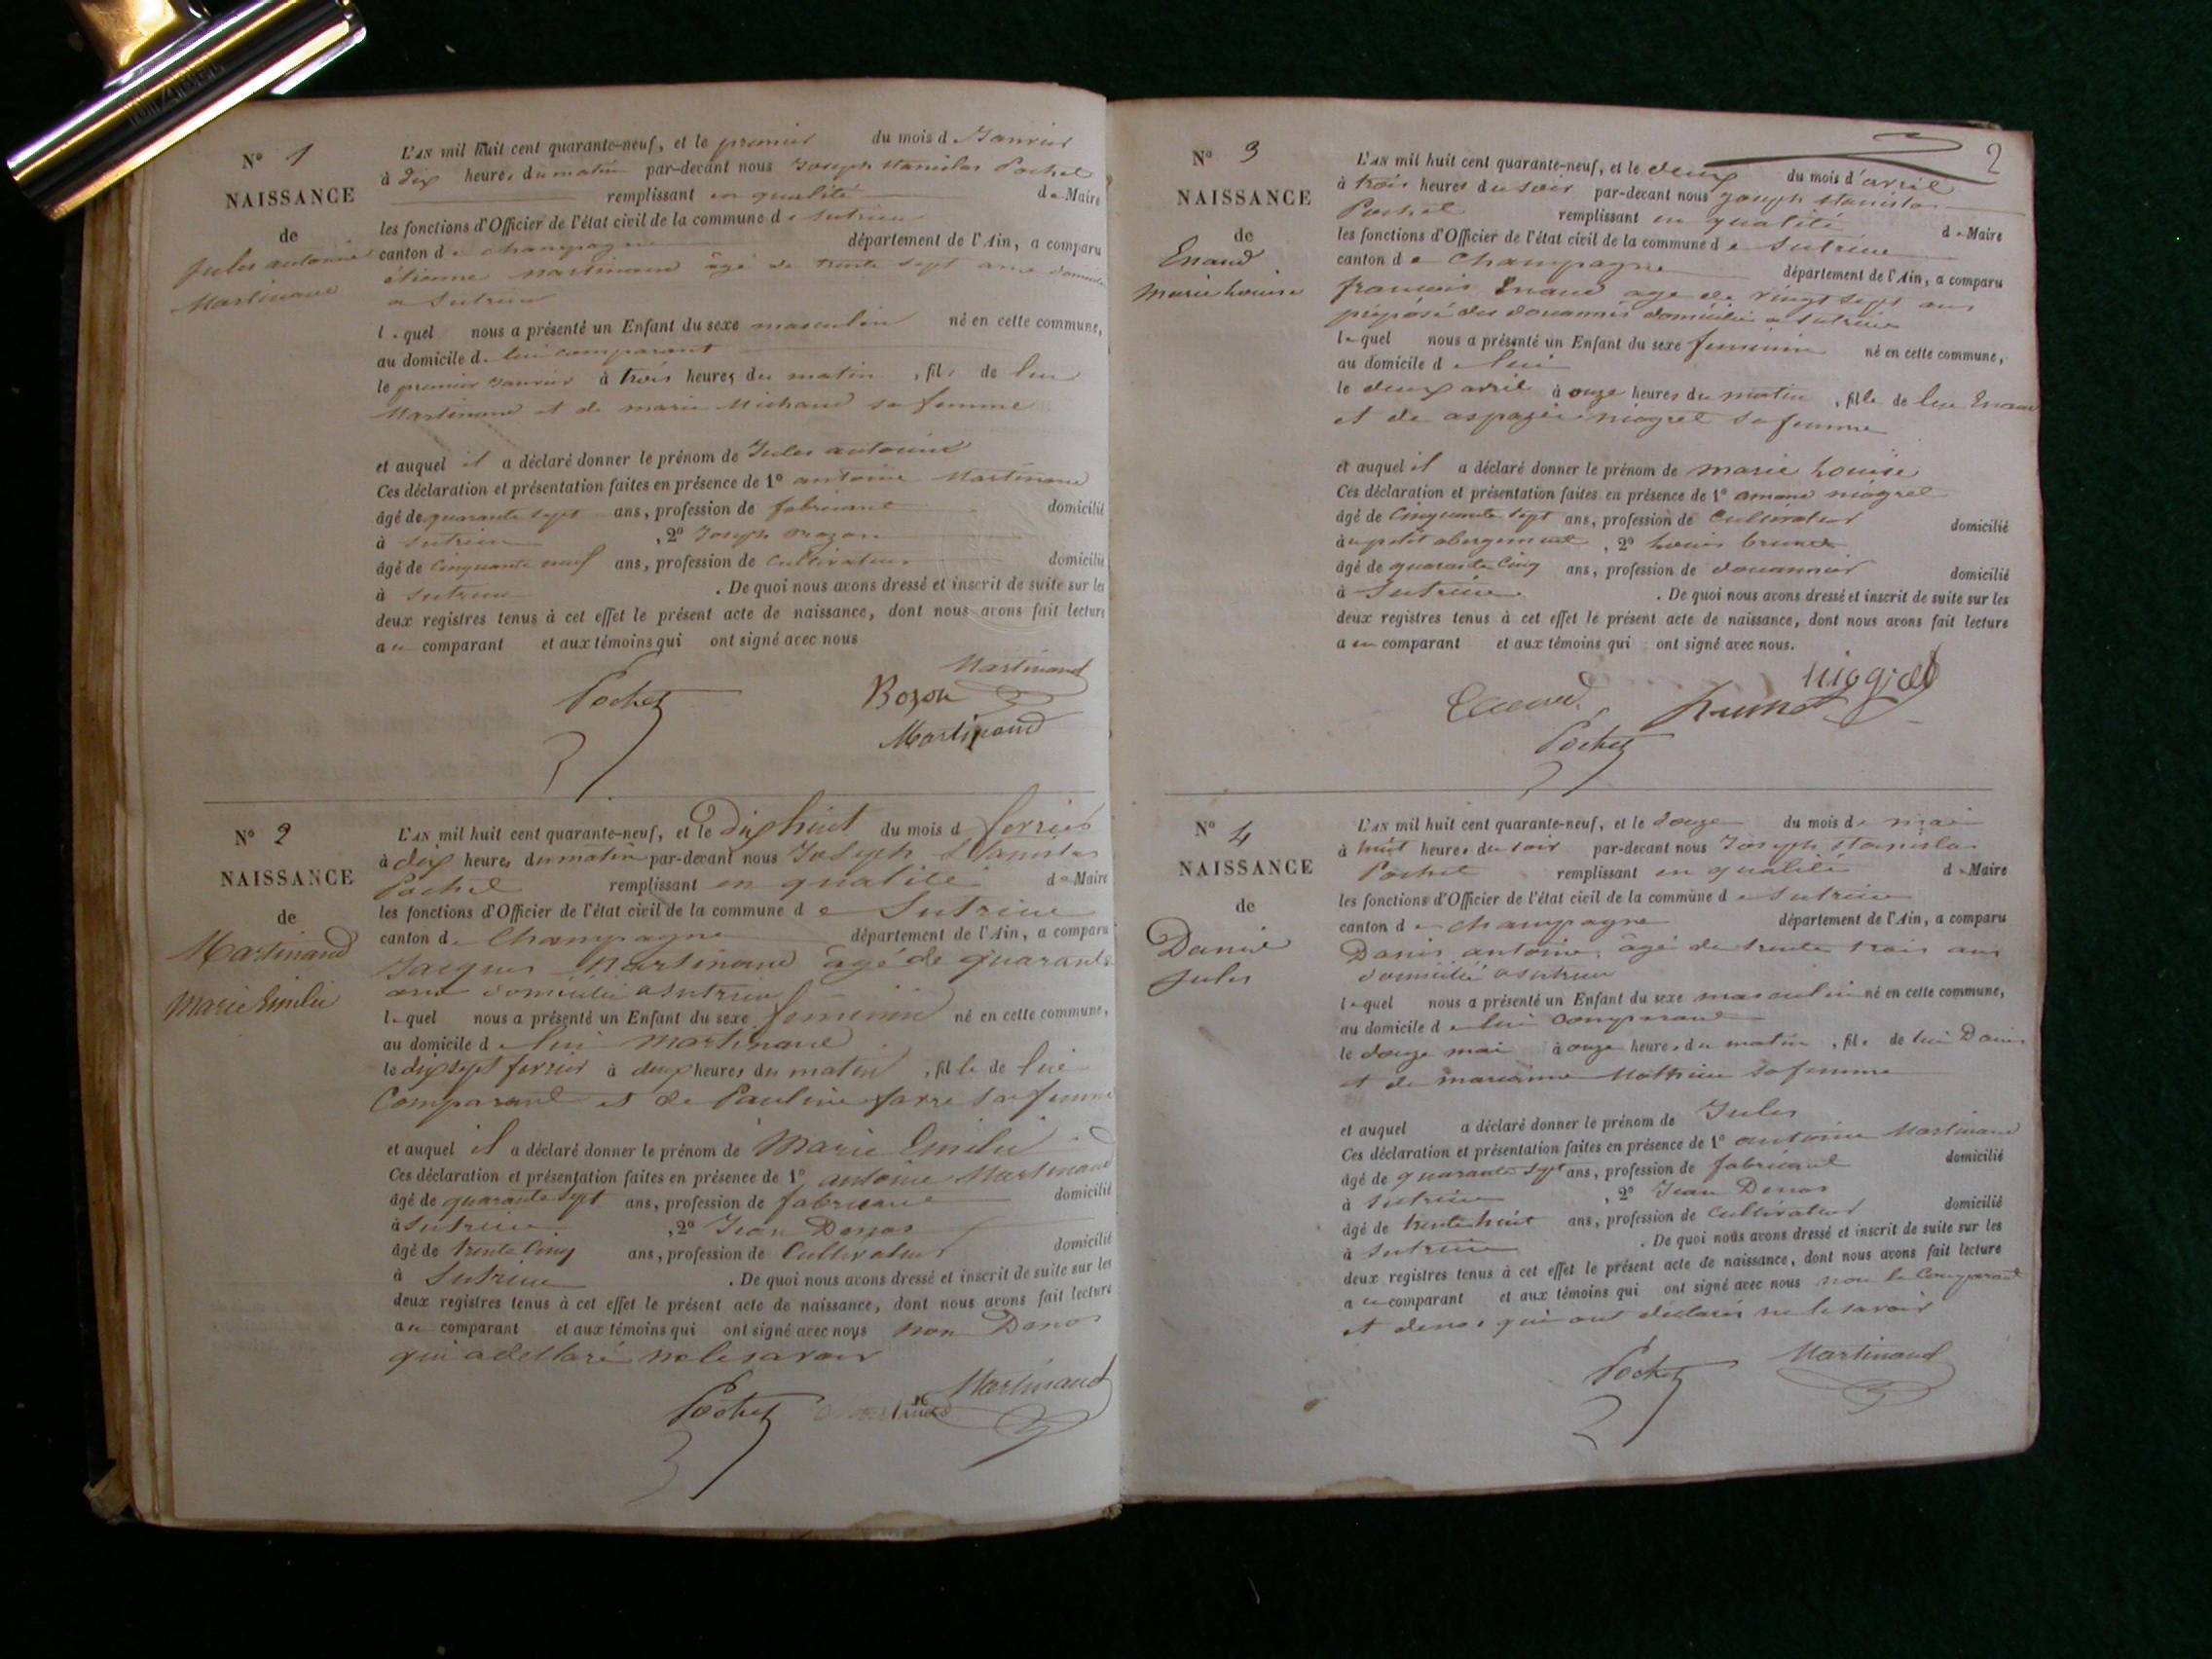 N° 1
NAISSANCE
de
jules antoine
Martinand
L'AN mil huit cent quarante-neuf, et le premier du mois d Janvier
à dix heures du matin par-devant nous Joseph Stanislas Pochet
remplissant en qualité de Maire
les fonctions d'Officier de l'état civil de la commune de Sutrieu
canton de champagne département de l'Ain, a comparu
étienne martinand âgé de trente sept ans domicilié
a Sutrieu
lequel nous a présenté un Enfant du sexe masculin né en cette commune,
au domicile de lui comparant
le premier Janvier à trois heures du matin, fils de lui
Martinand et de marie Michaud sa femme
et auquel il a déclaré donner le prénom de Jules antoine
Ces déclaration et présentation faites en présence de 1° antoine Martinand
âgé de quarante sept ans, profession de fabricant domicilié
à Sutrieu , 2° Joseph Bozon
âgé de Cinquante neuf ans, profession de Cultivateur domicilié
à Sutrieu . De quoi nous avons dressé et inscrit de suite sur les
deux registres tenus à cet effet le présent acte de naissance, dont nous avons fait lecture
au comparant et aux témoins qui ont signé avec nous
Martinand
Pochet Bozon
Martinand
N° 2
NAISSANCE
de
Martinand
Marie Emilie
L'AN mil huit cent quarante-neuf, et le Dix huit du mois d fevrier
à dix heures du matin par-devant nous Joseph Stanislas
Pochet remplissant en qualité de Maire
les fonctions d'Officier de l'état civil de la commune de Sutrieu
canton de Champagne département de l'Ain, a comparu
Jacques Martinand âgé de quarante
ans domicilié a Sutrieu
lequel nous a présenté un Enfant du sexe feminin né en cette commune,
au domicile de lui Martinand
le dix sept fevrier à deux heures du matin , fille de lui
Comparant et de Pauline farre sa femme
et auquel il a déclaré donner le prénom de Marie Emilie
Ces déclaration et présentation faites en présence de 1° antoine Martinand
âgé de quarante sept ans, profession de fabricant domicilié
à Sutrieu , 2° Jean Denos
âgé de trente Cinq ans, profession de Cultivateur domicilié
à Sutrieu . De quoi nous avons dressé et inscrit de suite sur les
deux registres tenus à cet effet le présent acte de naissance, dont nous avons fait lecture
au comparant et aux témoins qui ont signé avec nous non Denos
qui a declaré ne le savoir
Pochet Martinand
2
N° 3
NAISSANCE
de
Enaud
marie Louise
L'AN mil huit cent quarante-neuf, et le deux du mois d'avril
à trois heures du soir par-devant nous joseph stanislas
Pochet remplissant en qualité de Maire
les fonctions d'Officier de l'état civil de la commune de Sutrieu
canton de Champagne département de l'Ain, a comparu
francois Enaud age de vingt sept ans
préposé des douannes domicilié a Sutrieu
lequel nous a présenté un Enfant du sexe feminin né en cette commune,
au domicile de lui
le deux avril à onze heures du matin , fille de lui Enaud
et de aspazie niogret sa femme
et auquel il a déclaré donner le prénom de marie Louise
Ces déclaration et présentation faites en présence de 1° amand niogret
âgé de Cinquante sept ans, profession de Cultivateur domicilié
à au petit abergement , 2° Louis brunet
âgé de quarante Cinq ans, profession de douannier domicilié
à Sutrieu . De quoi nous avons dressé et inscrit de suite sur les
deux registres tenus à cet effet le présent acte de naissance, dont nous avons fait lecture
au comparant et aux témoins qui ont signé avec nous.
niogret
Enaud brunet
Pochet
N° 4
NAISSANCE
de
Danis
Jules
L'AN mil huit cent quarante-neuf, et le douze du mois de mai
à huit heures du soir par-devant nous Joseph stanislas
Pochet remplissant en qualité de Maire
les fonctions d'Officier de l'état civil de la commune de Sutrieu
canton de champagne département de l'Ain, a comparu
Danis antoine âgé de trente trois ans
domicilié a sutrieu
lequel nous a présenté un Enfant du sexe masculin né en cette commune,
au domicile de lui comparant
le douze mai à onze heures du matin , fils de lui Danis
et de marianne sa femme
et auquel a déclaré donner le prénom de Jules
Ces déclaration et présentation faites en présence de 1° antoine Martinand
âgé de quarante sept ans, profession de fabricant domicilié
à Sutrieu , 2° Jean Denos
âgé de trente huit ans, profession de Cultivateur domicilié
à Sutrieu . De quoi nous avons dressé et inscrit de suite sur les
deux registres tenus à cet effet le présent acte de naissance, dont nous avons fait lecture
au comparant et aux témoins qui ont signé avec nous non le Comparant
et denos qui ont déclarés ne le savoir
Pochet Martinand